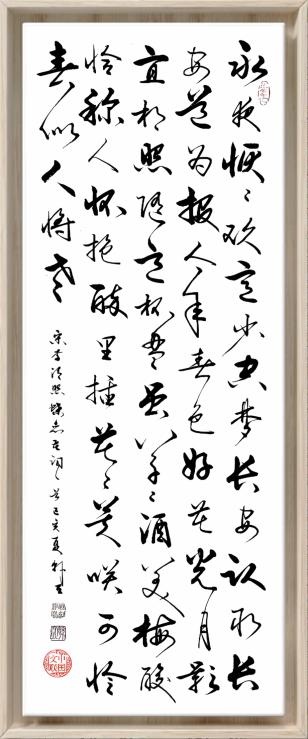 永夜恹〻欢意少空梦长安认取长
安道为报今年春色好花光月影
宜相照随意杯盘虽草〻酒美梅酸
恰称人怀抱醉里插花〻莫笑可怜
春似人将老
宋李清照蝶恋花词一首己亥夏